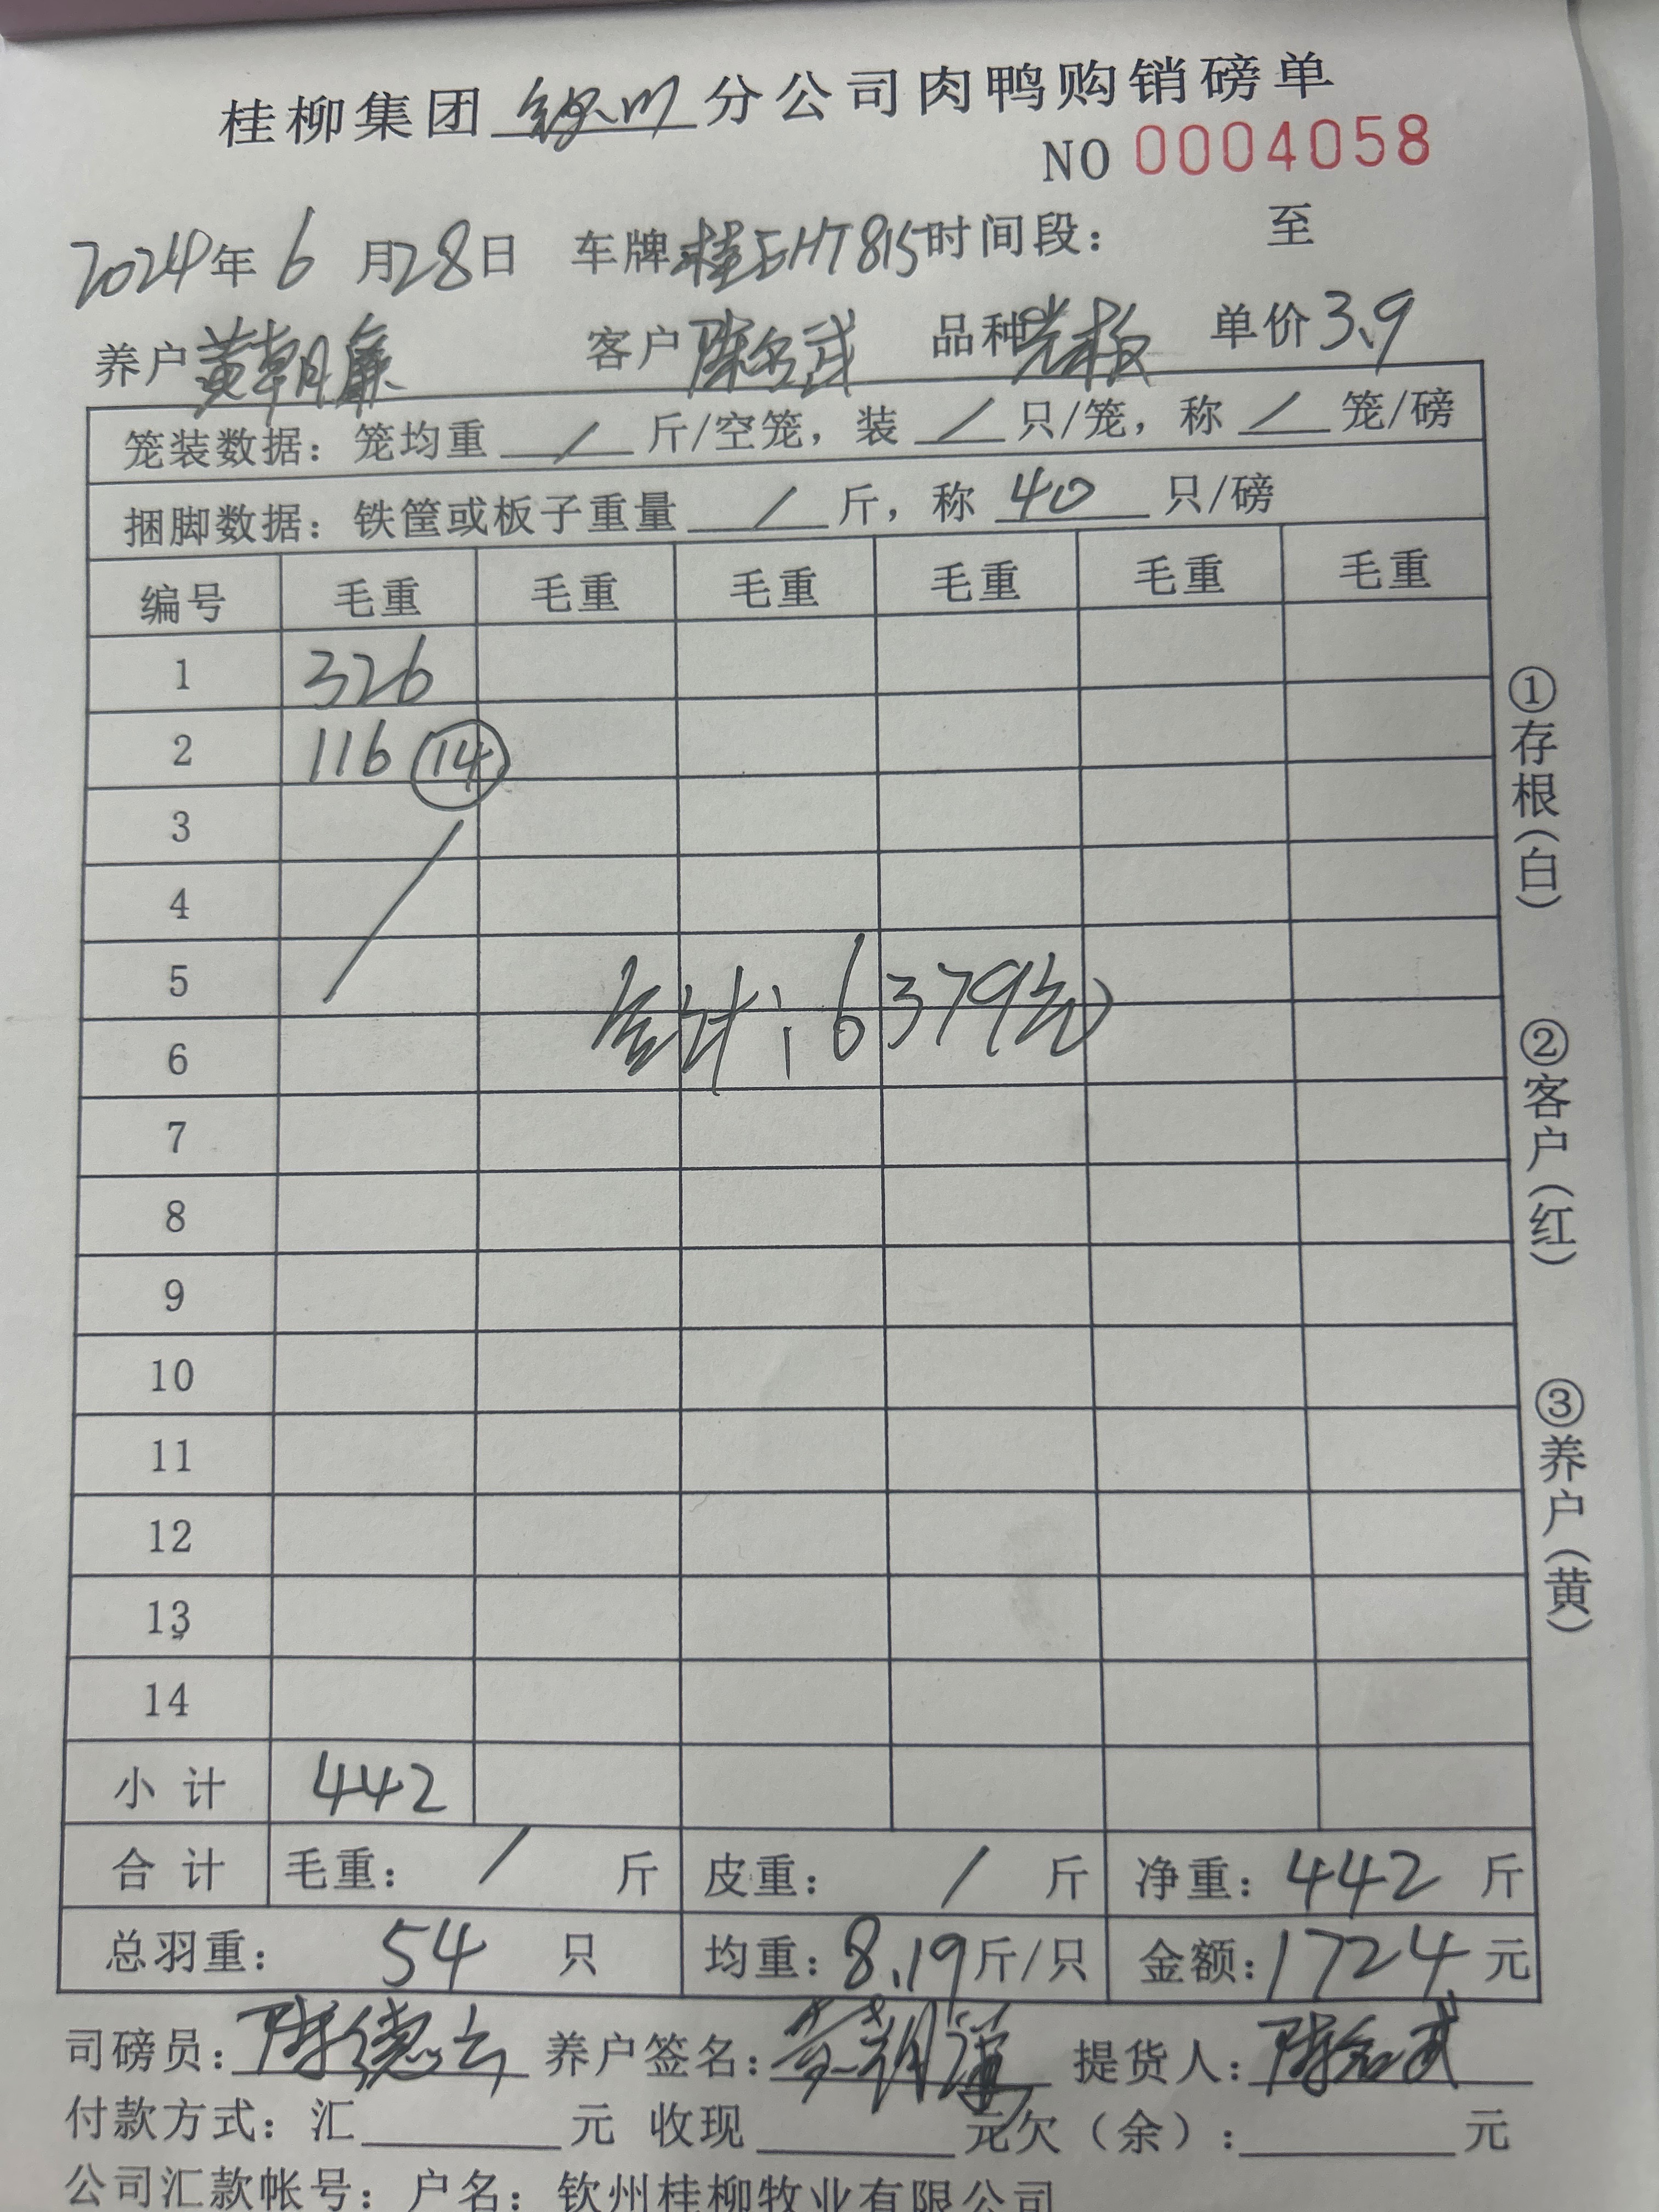 桂柳集团钦州分公司肉鸭购销磅单
NO 0004058
2024年6月28日 车牌桂EHT815时间段： 至
养户黄朝廉 客户陈名武 品种光板 单价3.9
笼装数据：笼均重 / 斤/空笼，装 / 只/笼，称 / 笼/磅
捆脚数据：铁筐或板子重量 / 斤，称 40 只/磅
编号 毛重 毛重 毛重 毛重 毛重 毛重
1 326
2 116 14
3
4
5
合计：6379元
6
7
8
9
10
11
12
13
14
小计 442
合计 毛重： / 斤 皮重： / 斤 净重：442 斤
总羽重： 54 只 均重：8.19斤/只 金额：1724元
司磅员：陈德云 养户签名： 提货人：陈名武
付款方式：汇 元 收现 元欠（余）： 元
公司汇款帐号：户名：钦州桂柳牧业有限公司
①存根（白）
②客户（红）
③养户（黄）